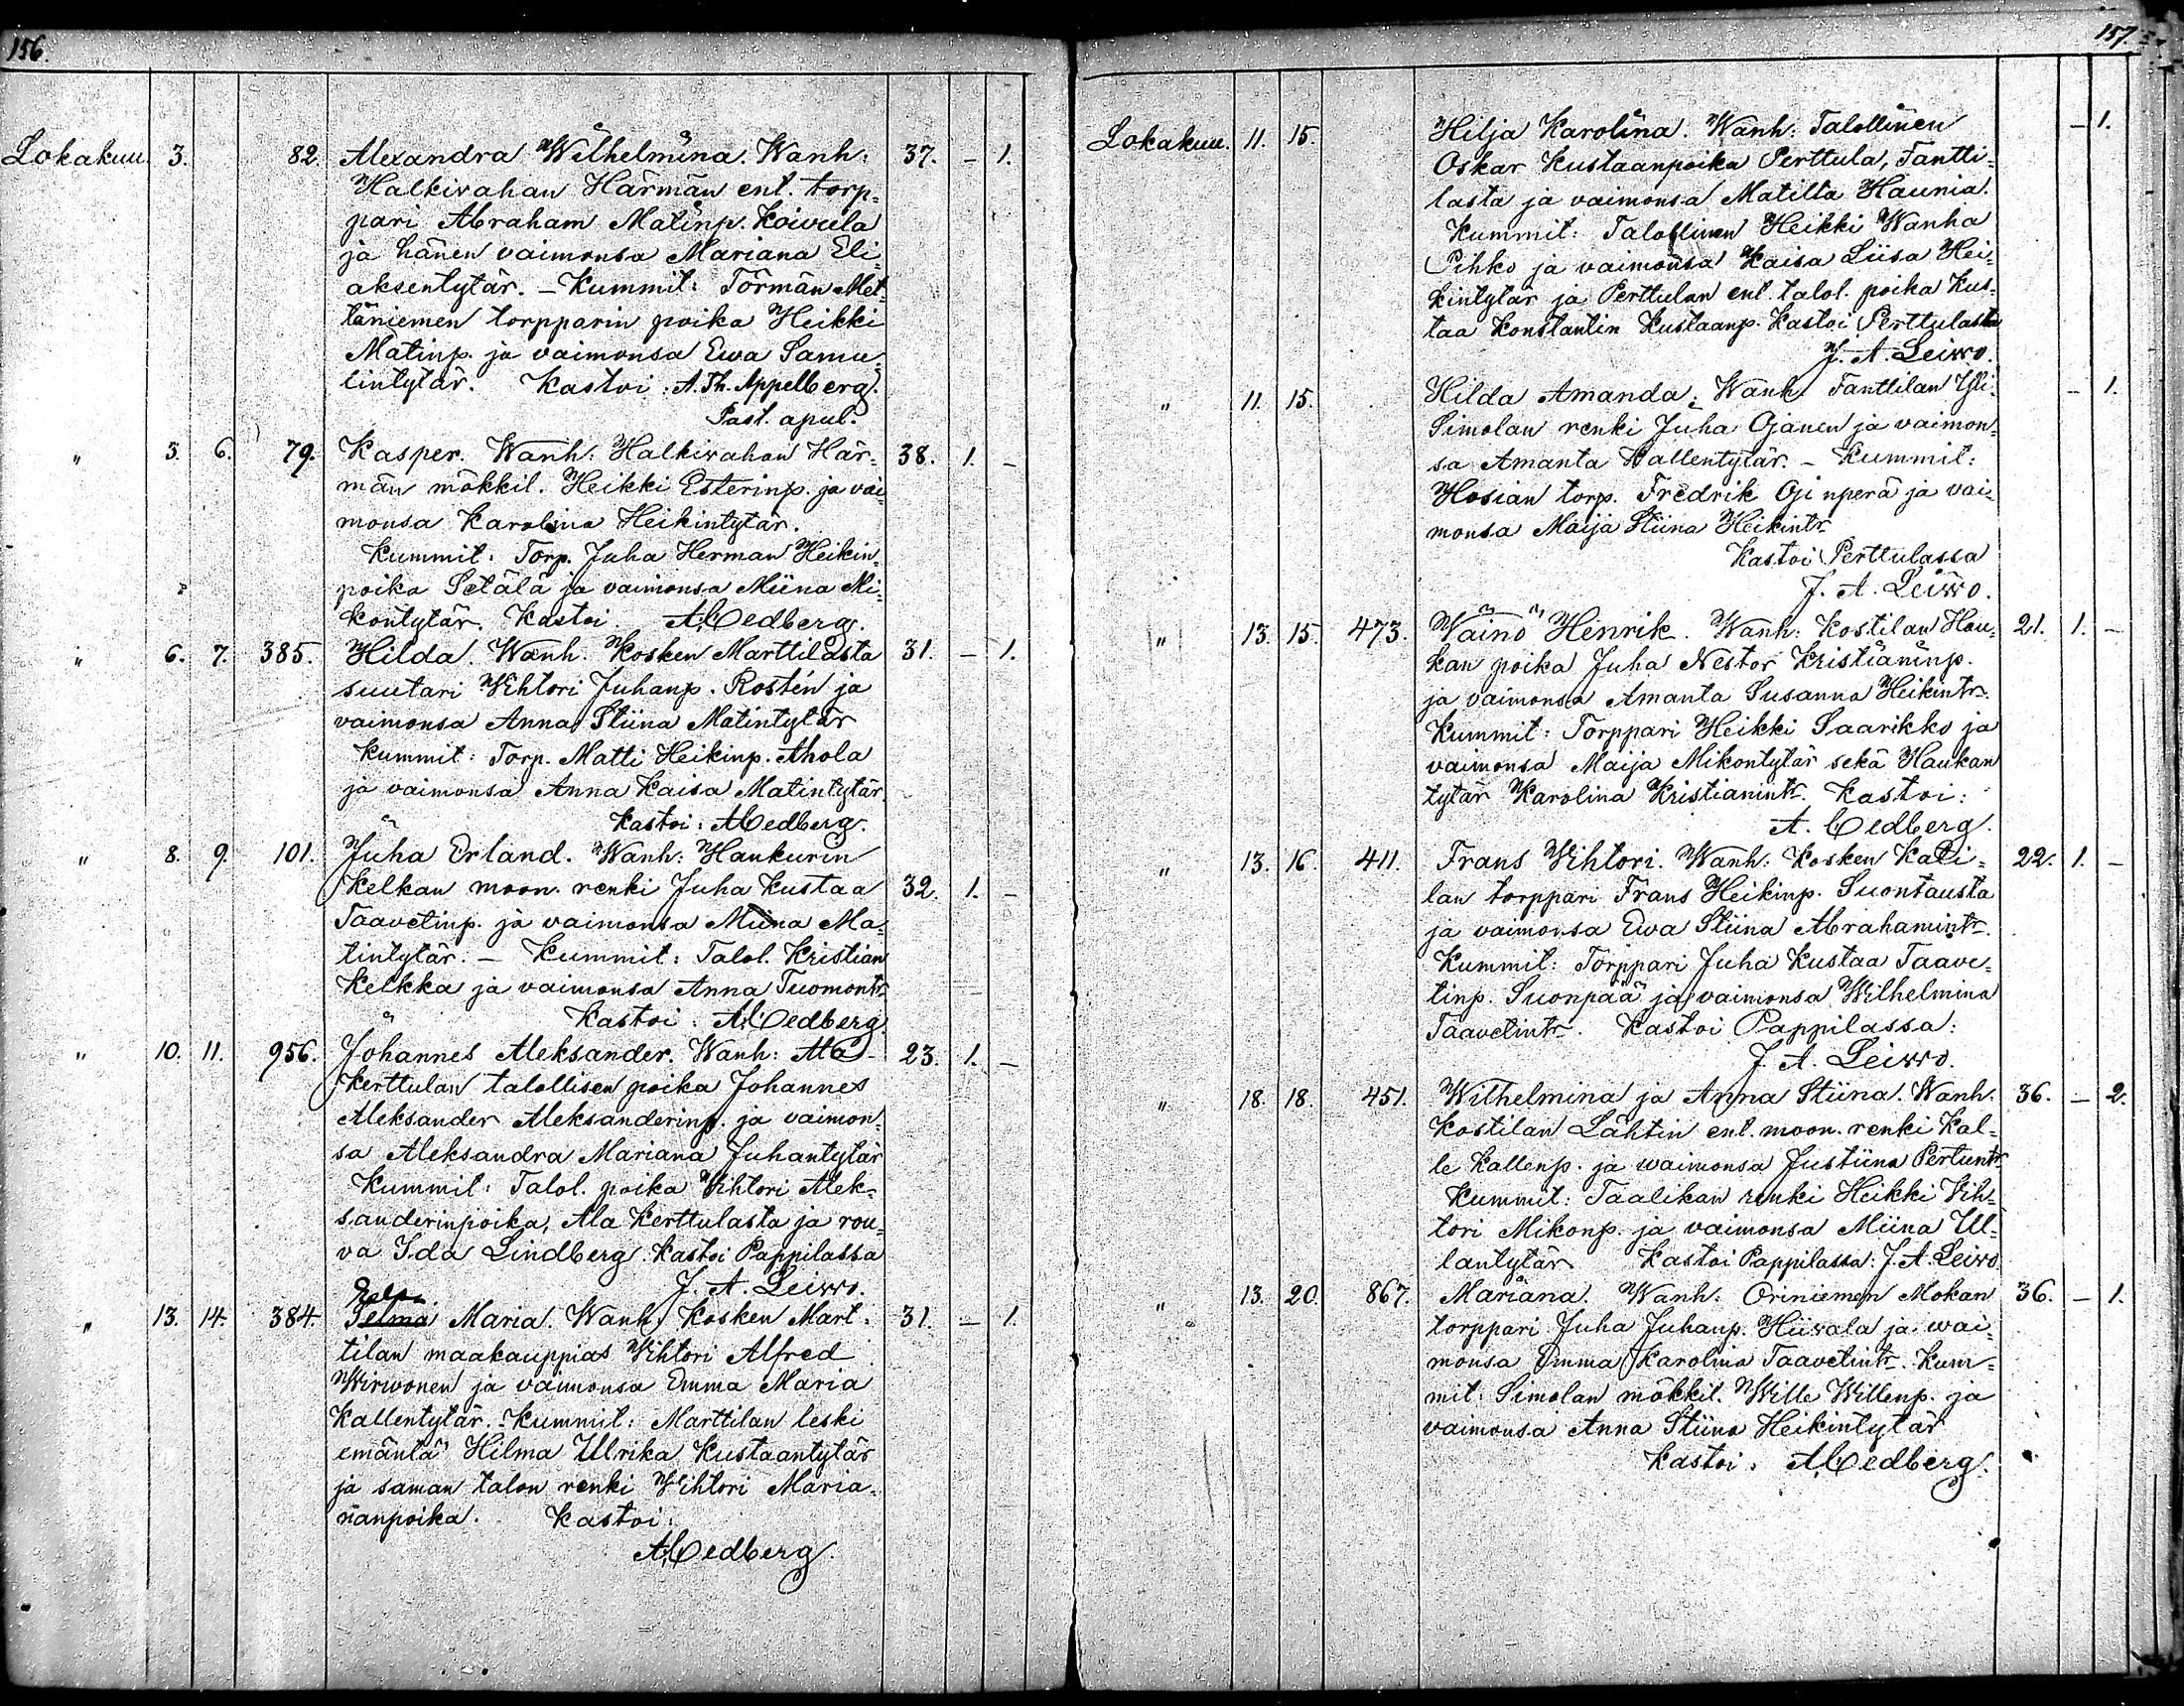 156.
Lokakuu 3. 82. Alexandra Wilhelmina. Wanh: 37. – 1.
Halkivahan Härmän ent. torp=
pari Abraham Matinp. Koivula
ja hänen vaimonsa Mariana Eli=
aksentytär. – Kummit: Törmän Met=
täniemen torpparin poika Heikki
Matinp. ja vaimonsa Ewa Samu=
lintytär. Kastoi: A. Th. Appelberg.
Past. apul.
" 3. 6. 79. Kasper. Wanh: Halkivahan Här= 38. 1. –
män mökkil. Heikki Esterinp. ja vai=
monsa Karolina Heikintytär.
Kummit: Torp. Juha Herman Heikin=
poika Setälä ja vaimonsa Miina Mi=
kontytär. Kastoi A. Cedberg.
" 6. 7. 385. Hilda. Wanh. Kosken Marttilasta 31. – 1.
suutari Vihtori Juhanp. Rostén ja
vaimonsa Anna Stiina Matintytär
Kummit: Torp. Matti Heikinp. Ahola
ja vaimonsa Anna Kaisa Matintytär.
Kastoi: A. Cedberg.
" 8. 9. 101. Juha Erland. Wanh: Haukurin
Kelkan moon. renki Juha Kustaa 32. 1. –
Taavetinp. ja vaimonsa Miina Ma=
tintytär. – Kummit: Talol. Kristian
Kelkka ja vaimonsa Anna Tuomontr.
Kastoi: A. Cedberg.
" 10. 11. 956. Johannes Aleksander. Wanh: Ala- 23. 1. –
Kerttulan talollisen poika Johannes
Aleksander Aleksanderinp. ja vaimon=
sa Aleksandra Mariana Juhantytär
Kummit: Talol. poika Vihtori Alek=
sanderinpoika, Ala Kerttulasta ja rou=
va Ida Lindberg. Kastoi Pappilassa
J. A. Leiwo.
" 13. 14. 384. Telma Maria. Wanh: Kosken Mart= 31. – 1.
tilan maakauppias Vihtori Alfred
Wirwonen ja vaimonsa Emma Maria
Kallentytär. – Kummit: Marttilan leski
emäntä Hilma Ulrika Kustaantytär
ja saman talon renki Vihtori Maria=
nanpoika. Kastoi:
A. Cedberg.
157.
Lokakuu. 11. 15. Hilja Karolina. Wanh: Talollinen – 1.
Oskar Kustaanpoika Perttula, Tantti=
lasta ja vaimonsa Matilta Haunia.
Kummit: Talollinen Heikki Wanha
Pihko ja vaimonsa Kaisa Liisa Hei=
kintytär ja Perttulan ent. talol. poika Kus=
taa Konstantin Kustaanp. Kastoi Perttulasta
J. A. Leiwo.
" 11. 15. Hilda Amanda. Wanh: Tanttilan Yli= – 1.
Simolan renki Juha Ojanen ja vaimon=
sa Amanta Kallentytär. – Kummit:
Hosian torp. Fredrik Ojinperä ja vai=
monsa Maija Stiina Heikintr.
Kastoi Perttulassa
J. A. Leiwo.
" 13. 15. 473. Väinö Henrik. Wanh: Kostilan Hau= 21. 1. –
kan poika Juha Nestor Kristianinp.
ja vaimonsa Amanta Susanna Heikintr.
Kummit: Torppari Heikki Saarikko ja
vaimonsa Maija Mikontytär sekä Haukan
tytär Karolina Kristianintr. Kastoi:
A. Cedberg.
" 13. 16. 411. Frans Vihtori. Wanh: Kosken Kati= 22. 1. –
lan torppari Frans Heikinp. Suontausta
ja vaimonsa Ewa Stiina Abrahamintr.
Kummit: Torppari Juha Kustaa Taave=
tinp. Suonpää ja vaimonsa Wilhelmina
Taavetintr. Kastoi Pappilassa:
J. A. Leiwo.
" 18. 18. 451. Wilhelmina ja Anna Stiina. Wanh: 36. – 2.
Kostilan Lähtin ent. moon. renki Kal=
le Kallenp. ja waimonsa Justiina Pertuntr.
Kummit: Taalikan renki Heikki Vih=
tori Mikonp. ja vaimonsa Miina Ul=
lantytär Kastoi Pappilassa: J. A. Leiwo
" 13. 20. 867. Mariana. Wanh: Oriniemen Mokan 36. – 1.
torppari Juha Juhanp. Hiivala ja wai=
monsa Emma Karolina Taavetintr. Kum=
mit: Simolan mökkil. Wille Willenp. ja
vaimonsa Anna Stiina Heikintytär
Kastoi: A. Cedberg.